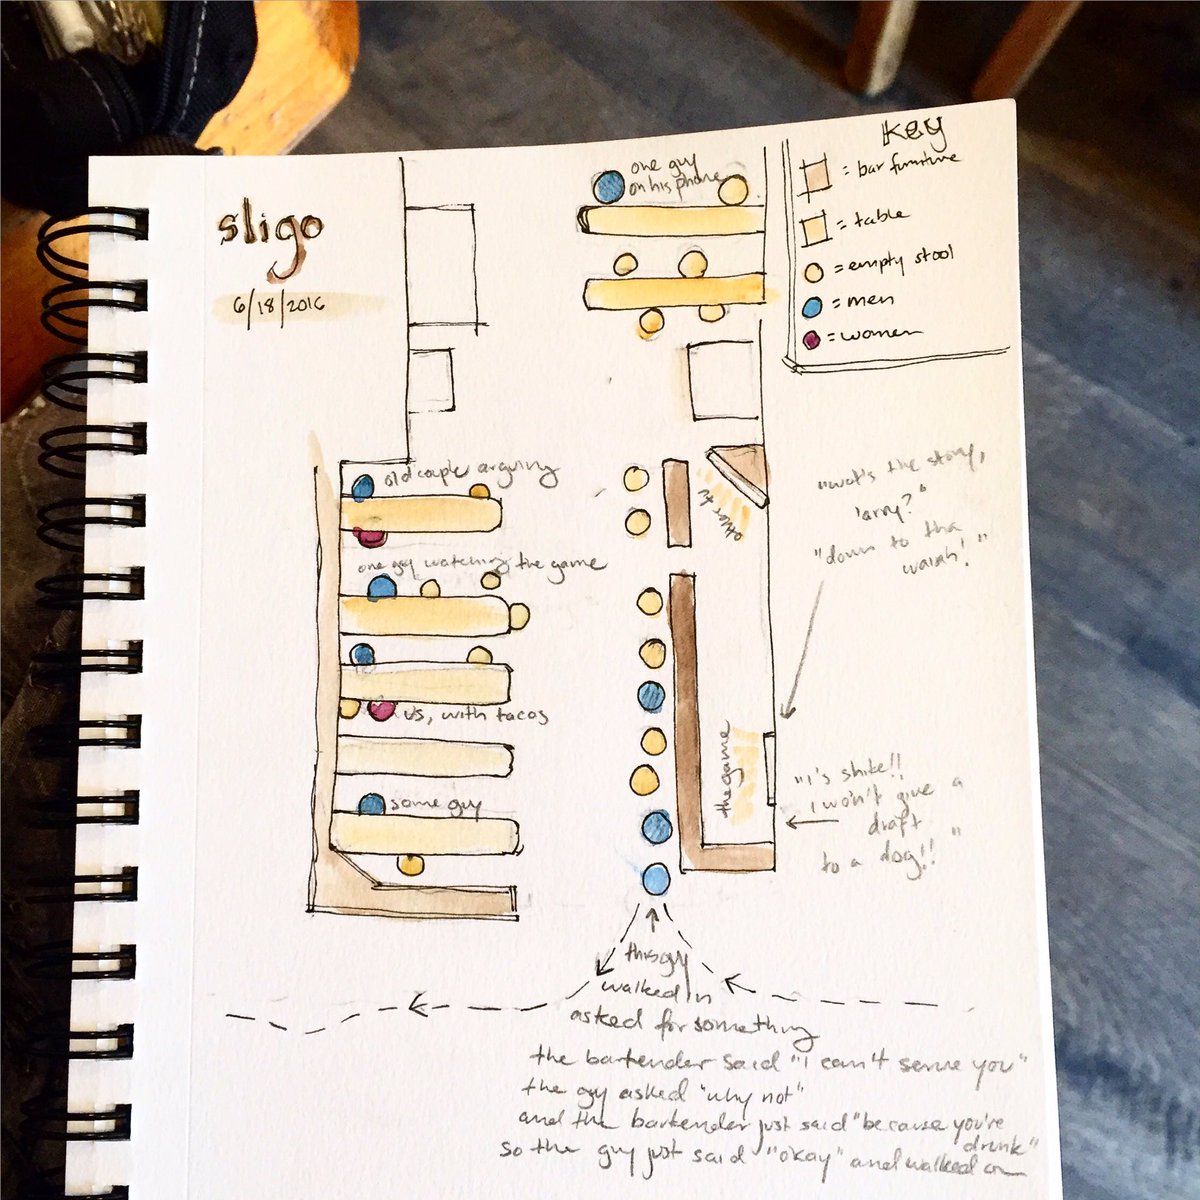 sligo
6/18/2016
one guy
on his phone
Key
= bar furniture
= table
= empty stool
= men
= women
old couple arguing
one guy watching the game
us, with tacos
some guy
other tv
the game
"wot's the story,
larry?"
"down to tha
"i's shite!!
i won't give a
draft
to a dog!!"
this guy
walked in
asked for something
the bartender said "i can't serve you"
the guy asked "why not"
and the bartender just said "because you're
drunk"
so the guy just said "okay" and walked on